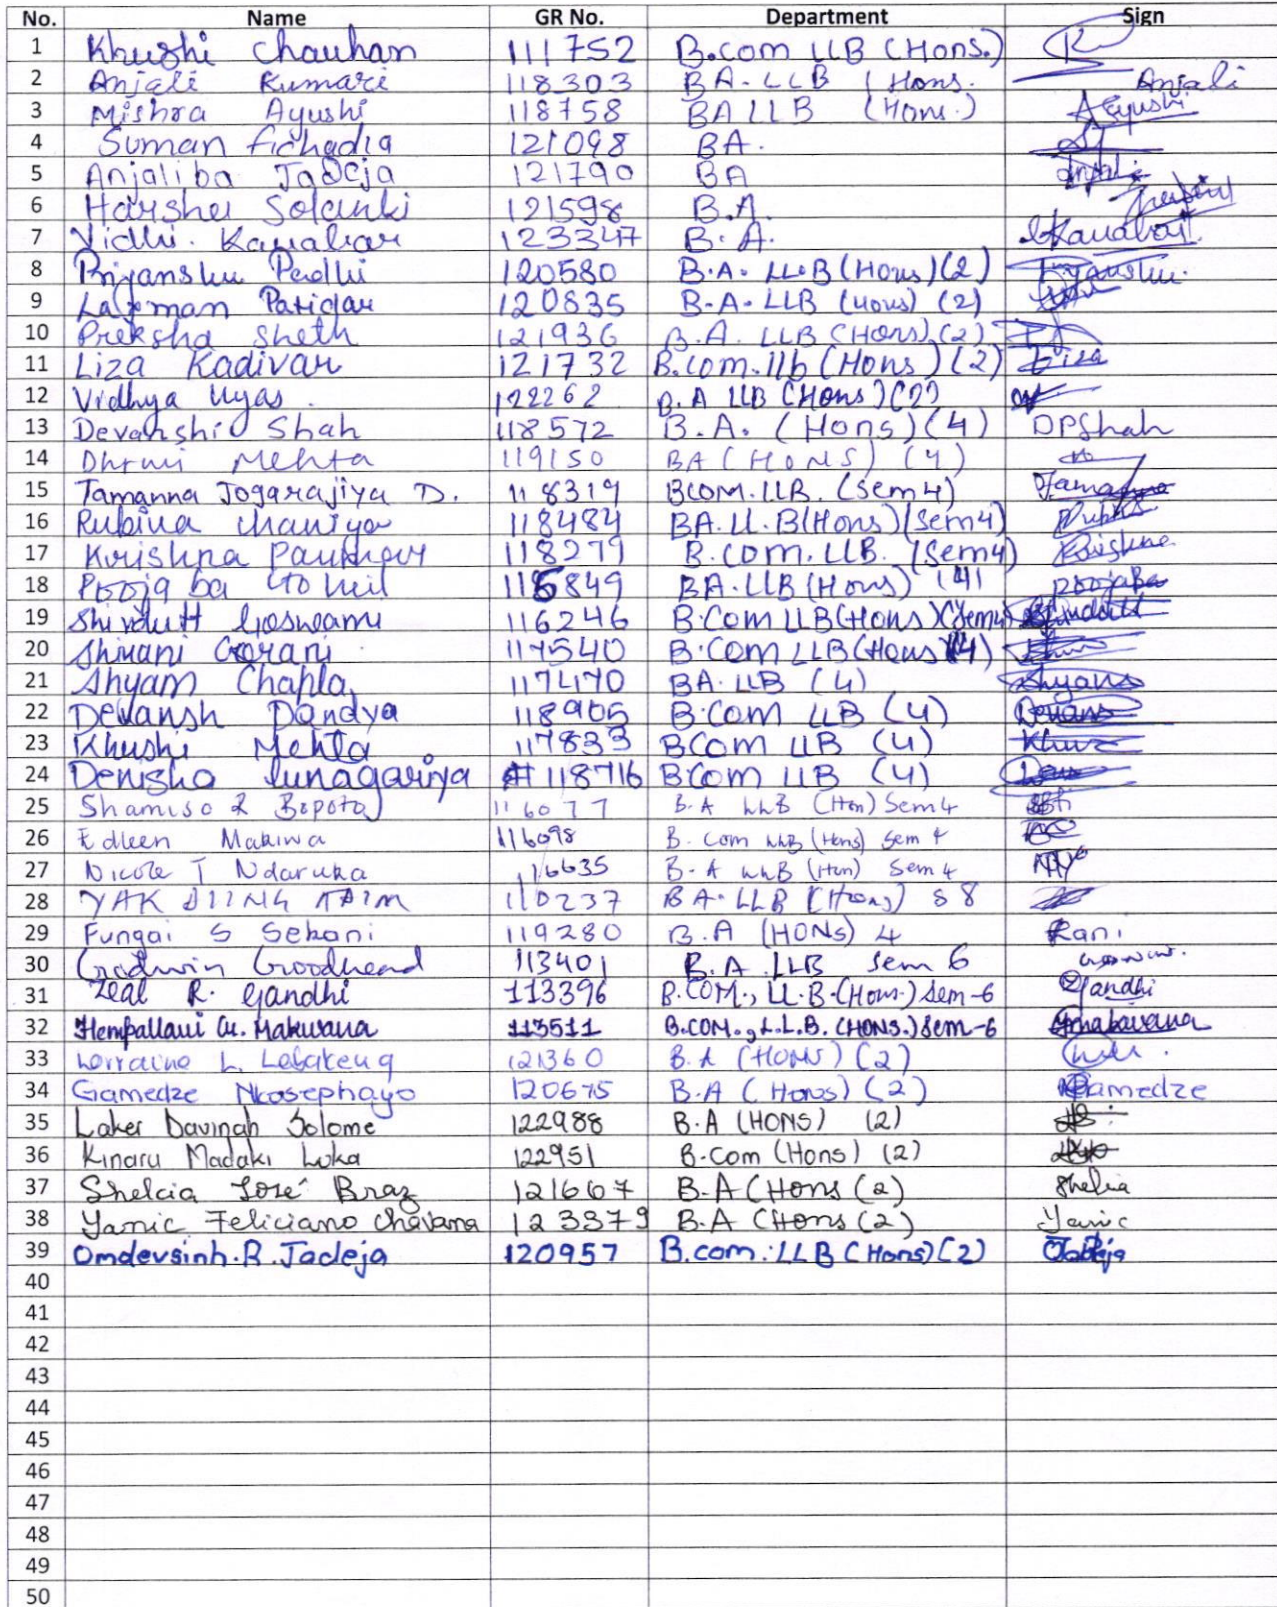 No. Name GR No. Department Sign
1 Khushi Chauhan 111752 B.com LLB (Hons.)
2 Anjali Kumari 118303 BA.LLB (Hons. Anjali
3 Mishra Ayushi 118758 BALLB (Hons.) Ayushi
4 Suman fichadia 121098 BA.
5 Anjaliba Jadeja 121790 BA Anjali
6 Harsha Solanki 121598 B.A.
7 Vidhi. Kanabar 123347 B.A. Kanabar
8 Priyanshu Padhi 120580 B.A. LL.B (Hons) (2) Priyanshu.
9 Laxman Patidar 120835 B.A.LLB (Hons) (2)
10 Preksha Sheth 121936 B.A. LLB (Hons) (2)
11 Liza Kadivar 121732 B.com.llb (Hons) (2) Liza
12 Vidhya Uyas. 122262 B.A LLB (Hons) (2)
13 Devanshi Shah 118572 B.A. (Hons) (4) DPShah
14 Dhruvi Mehta 119150 BA (HONS) (4)
15 Tamanna Jogarajiya D. 118319 BCOM.LLB. (Sem4) Tamanna
16 Rubina 118484 BA.LL.B(Hons)(Sem4)
17 Krishna 118279 B.COM.LLB. (Sem4) Krishna
18 Poojaba Gohil BA.LLB(Hons) (4) Poojaba
19 Shivdutt Goswami 116246 B.Com LLB(Hons)(Sem4) Shivdutt
20 Shivani Gorani 117540 B.Com LLB(Hons)(4)
21 Shyam Chapla 117470 BA.LLB (4) Shyam
22 Devansh Pandya 118905 B.Com LLB (4) Devans
23 Khushi Mehta 117833 BCom LLB (4)
24 Denisha Lunagariya 118716 BCom LLB (4)
25 Shamiso R Bopoto 116077 B.A LLB (Hon) Sem 4
26 Edleen Makiwa 116098 B. Com LLB (Hons) Sem 4
27 Nicole T Ndaruka 116635 B.A LLB (Hon) Sem 4
28 YAK 110237 BA.LLB (Hons) S8
29 Fungai S Sekani 119280 B.A (HONS) 4 Rani
30 Godwin Goodhead 113401 B.A LLB Sem 6
31 Zeal R. Gandhi 113396 B.COM., LL.B.(Hons.) Sem-6 Gandhi
32 Hempallavi G. Makwana 113511 B.COM., L.L.B. (HONS.) Sem-6
33 Lorraine L. Lebakeng 121360 B.A (HONS) (2)
34 Gamedze Nkosephayo 120675 B.A (Hons) (2) Gamedze
35 Laker Davinah Solome 122988 B.A (HONS) (2)
36 Kinaru Madaki Luka 122951 B.Com (Hons) (2)
37 Shelcia José Braz 121667 B.A (Hons (2) Shelcia
38 Yanic Feliciano Chavana 123379 B.A (Hons (2) Yanic
39 Omdevsinh.R.Jadeja 120957 B.com.LLB (Hons)(2) Jadeja
40
41
42
43
44
45
46
47
48
49
50